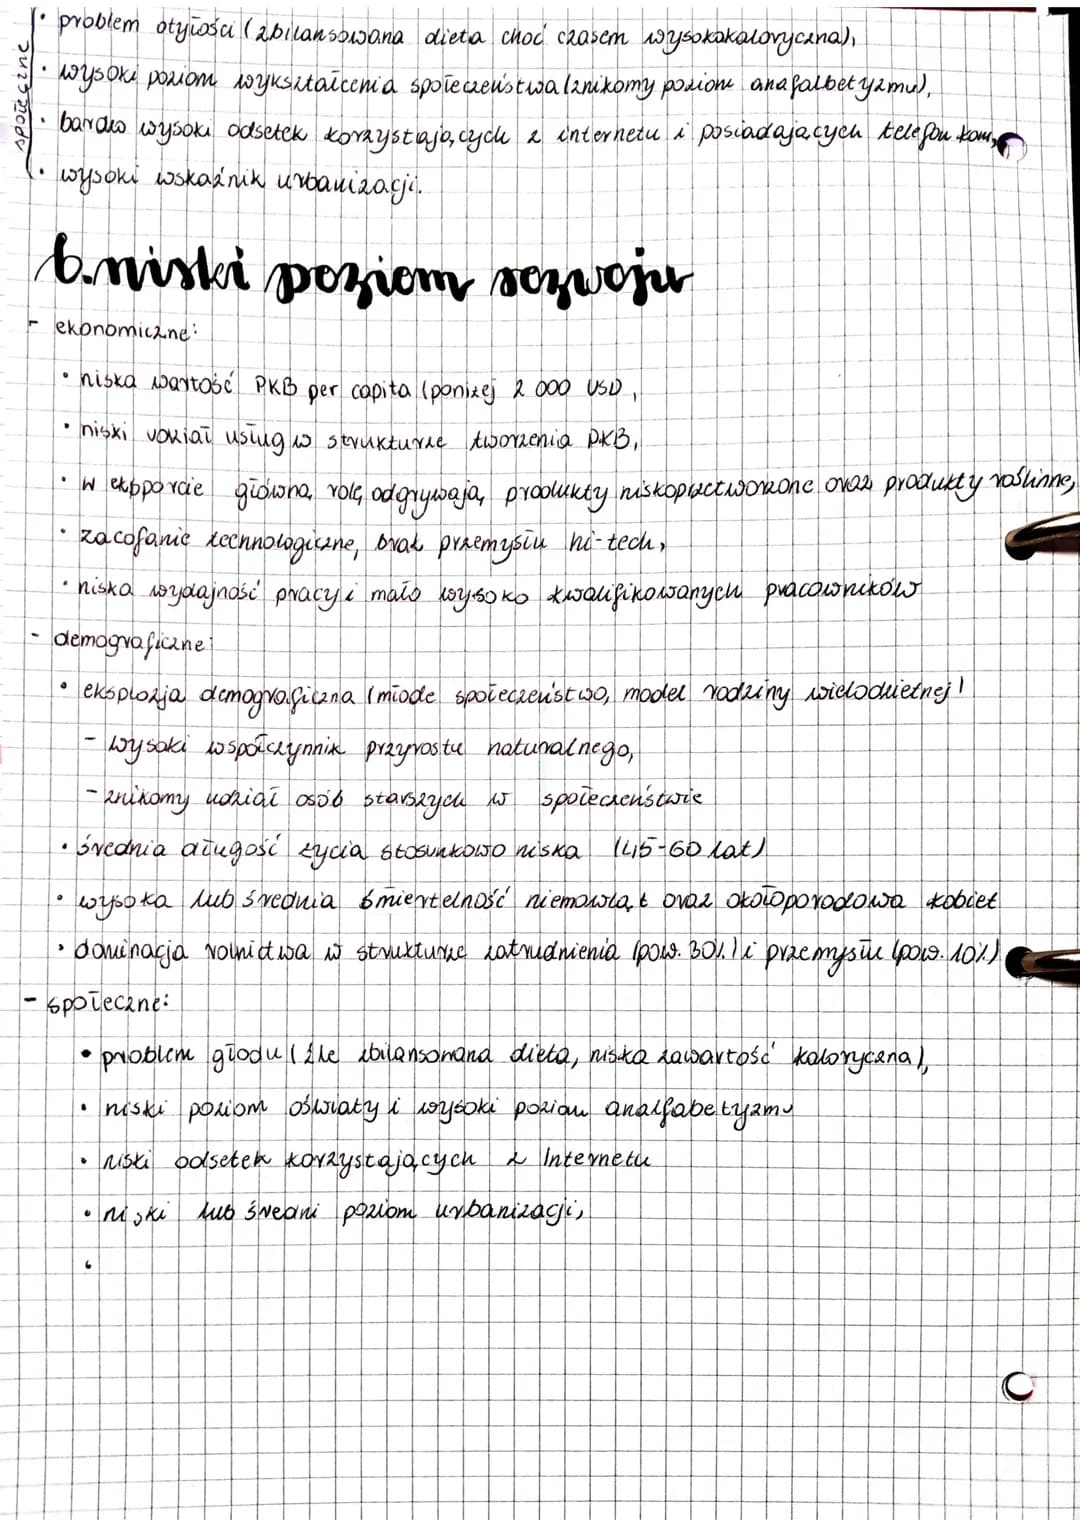 społeczne
• problem otyłości (zbilansowana dieta choć czasem wysokokaloryczna),
• wysoki poziom wykształcenia społeczeństwa (znikomy poziom anafalbetyzmu),
• bardzo wysoki odsetek korzystających z internetu i posiadających telefon kom,
• wysoki wskaźnik urbanizacji.
6. niski poziom rozwoju
- ekonomiczne:
• niska wartość PKB per capita (poniżej 2 000 USD,
• niski udział usług w strukturze tworzenia PKB,
• w eksporcie główną rolę odgrywają produkty niskoprzetworzone oraz produkty roślinne,
• zacofanie technnologiczne, brak przemysłu hi-tech,
• niska wydajność pracy i mało wysoko kwalifikowanych pracowników
- demograficzne:
• eksplozja demograficzna (młode społeczeństwo, model rodziny wielodzietnej)
- wysoki współczynnik przyrostu naturalnego,
- znikomy udział osób starszych w społeczeństwie
• średnia długość życia stosunkowo niska (45-60 lat)
• wysoka lub średnia śmiertelność niemowląt oraz okołoporodowa kobiet
• dominacja rolnictwa w strukturze zatrudnienia (pow. 30%) i przemysłu (pow. 10%)
- społeczne:
• problem głodu (źle zbilansowana dieta, niska zawartość kaloryczna),
• niski poziom oświaty i wysoki poziom analfabetyzmu
• niski odsetek korzystających z Internetu
• niski lub średni poziom urbanizacji,
•